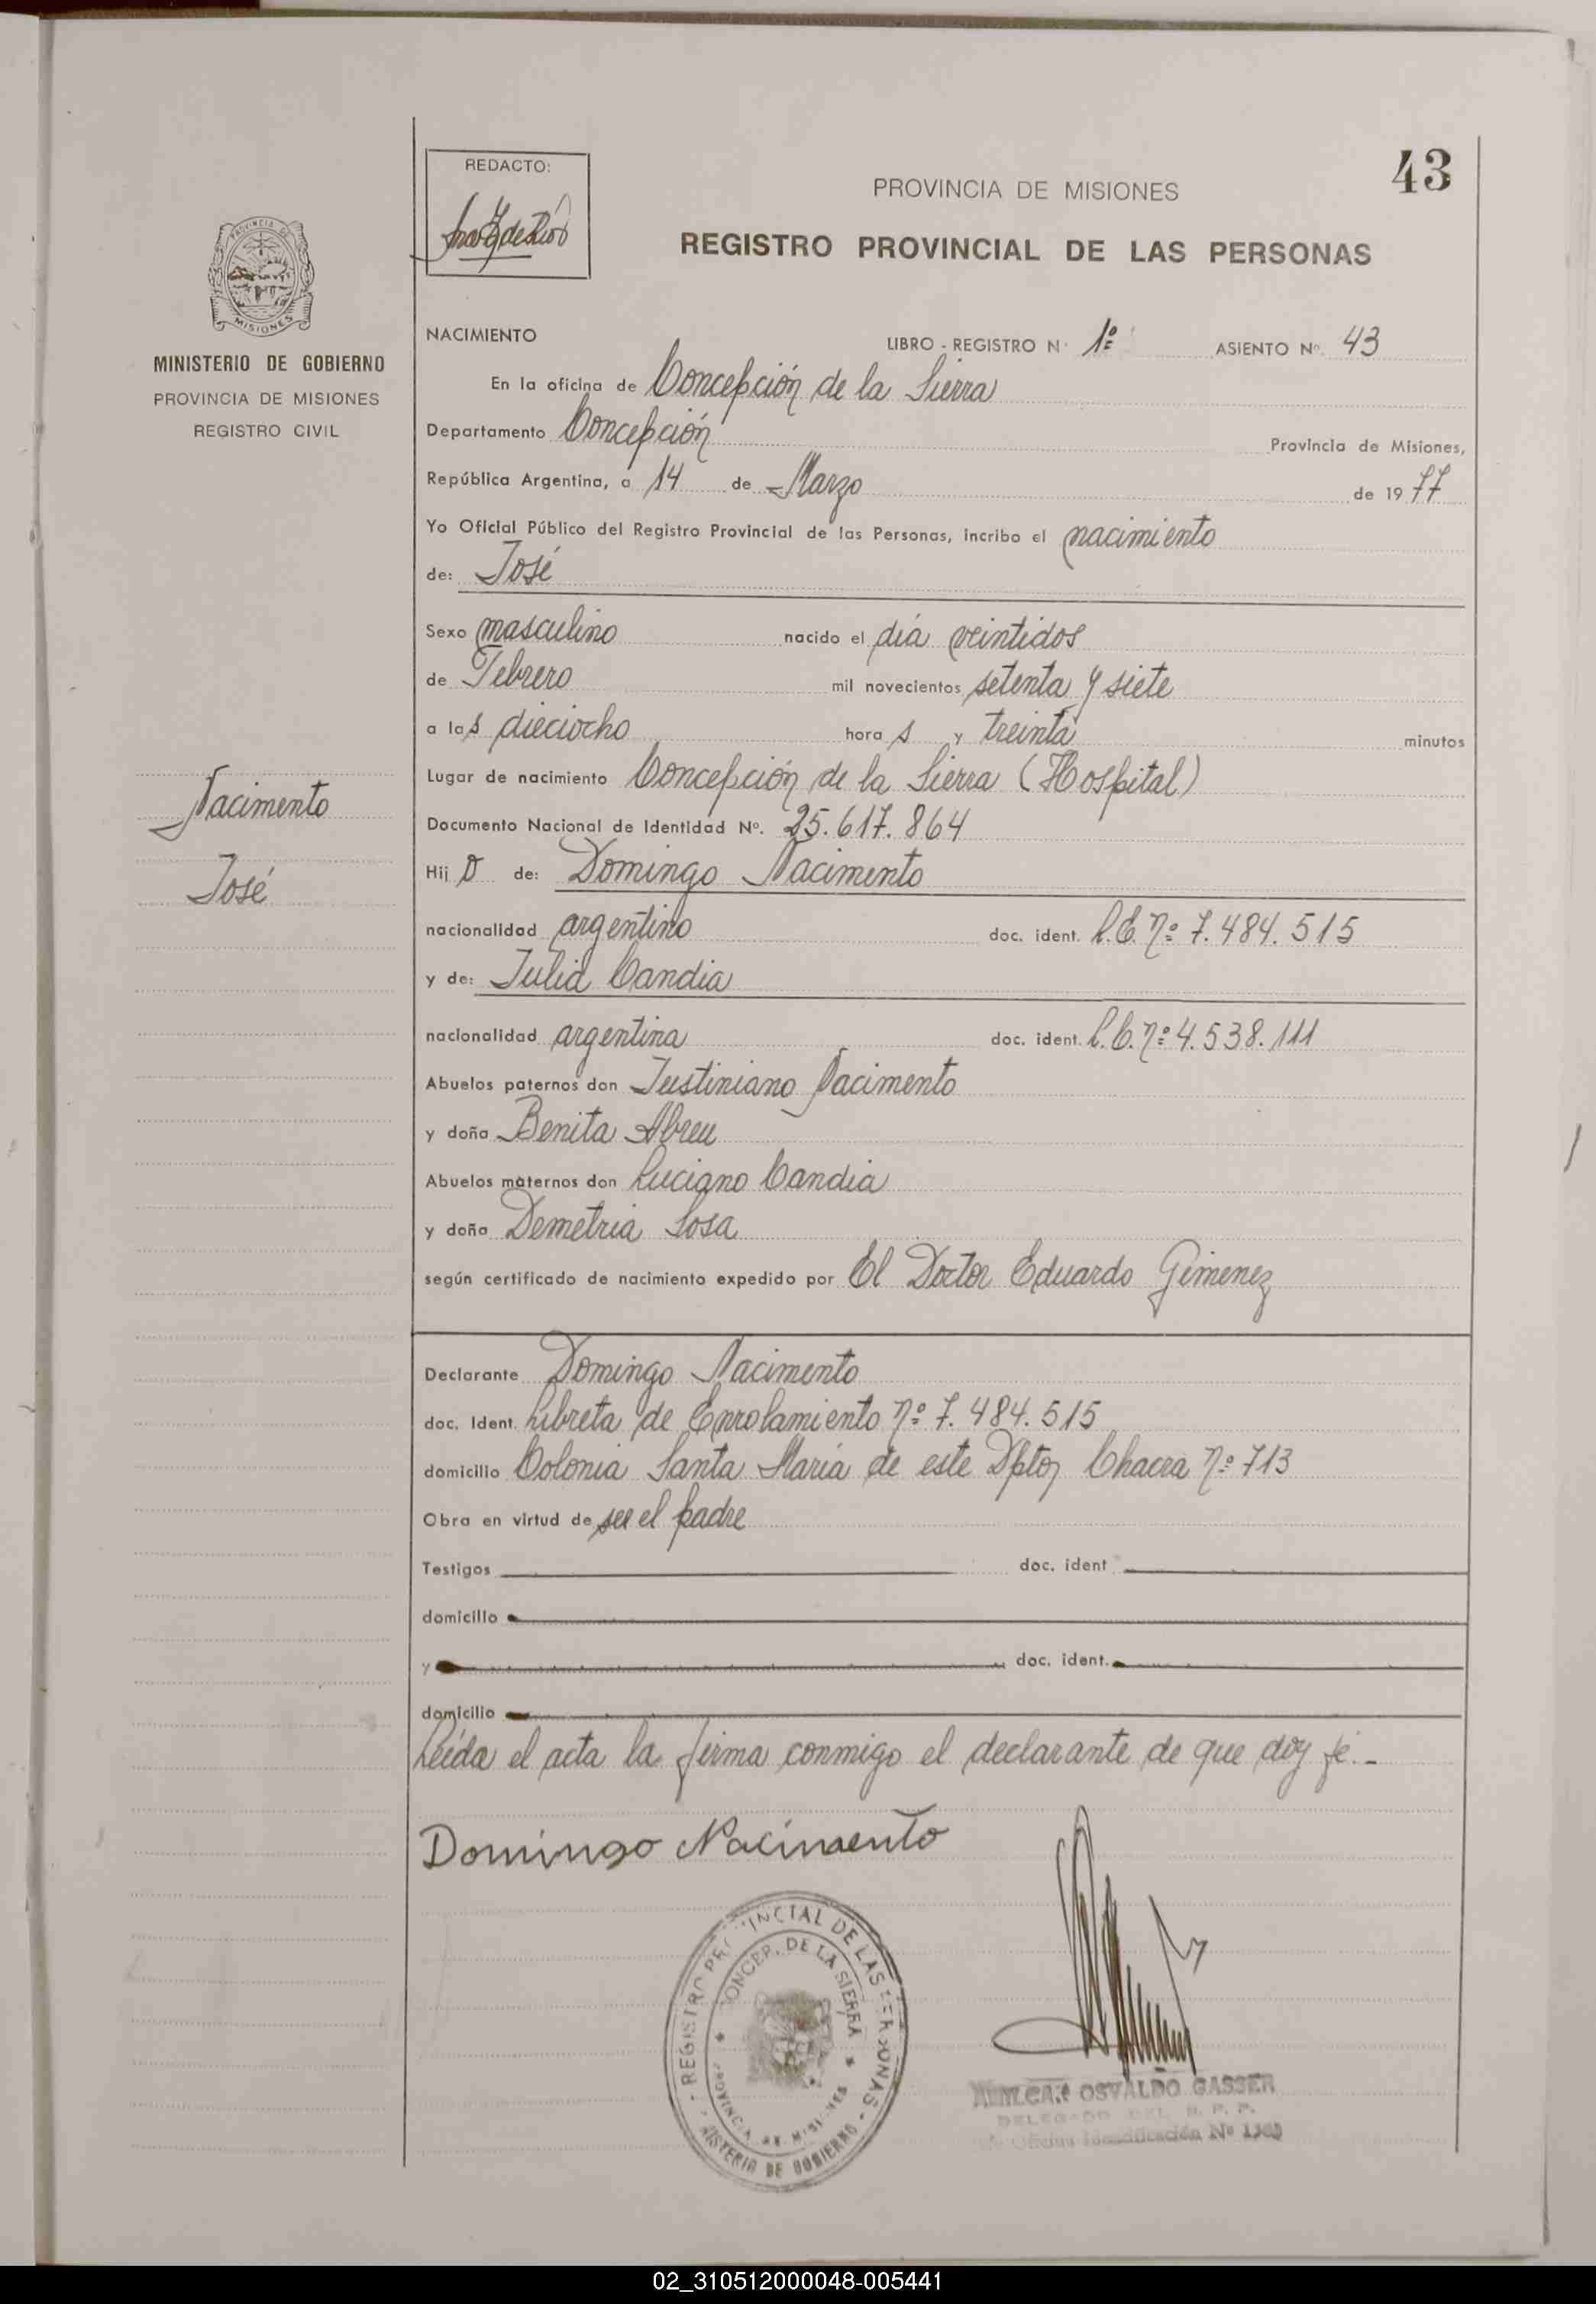 43
REDACTO:
PROVINCIA DE MISIONES
REGISTRO PROVINCIAL DE LAS PERSONAS
PROVINCIA DE
MISIONES
MINISTERIO DE GOBIERNO
PROVINCIA DE MISIONES
REGISTRO CIVIL
NACIMIENTO LIBRO - REGISTRO N° 1º ASIENTO Nº. 43
En la oficina de Concepción de la Sierra
Departamento Concepción Provincia de Misiones,
República Argentina, a 14 de Marzo de 1977
Yo Oficial Público del Registro Provincial de las Personas, incribo el nacimiento
de: José
Sexo masculino nacido el día veintidos
de Febrero mil novecientos setenta y siete
a las dieciocho horas y treinta minutos
Lugar de nacimiento Concepción de la Sierra (Hospital)
Documento Nacional de Identidad Nº. 25.617.864
Hijo de: Domingo Nacimento
nacionalidad argentino doc. ident. L.E. nº 7.484.515
y de: Julia Candia
nacionalidad argentina doc. ident. L.C. nº 4.538.111
Abuelos paternos don Justiniano Nacimento
y doña Benita Abreu
Abuelos maternos don Luciano Candia
y doña Demetria Sosa
según certificado de nacimiento expedido por El Doctor Eduardo Gimenez
Nacimento
José
Declarante Domingo Nacimento
doc. Ident. Libreta de Enrolamiento nº 7.484.515
domicilio Colonia Santa María de este Dpto, Chacra nº 713
Obra en virtud de ser el padre
Testigos doc. ident
domicilio
y doc. ident.
domicilio
Leída el acta la firma conmigo el declarante de que doy fé.-
Domingo Nacimento
REGISTRO PROVINCIAL DE LAS PERSONAS
CONCEP. DE LA SIERRA
PROVINCIA DE MISIONES
MINISTERIO DE GOBIERNO
AMILCAR OSVALDO GASSER
DELEGADO DEL R. P. P.
Oficina Identificación Nº
02_310512000048-005441